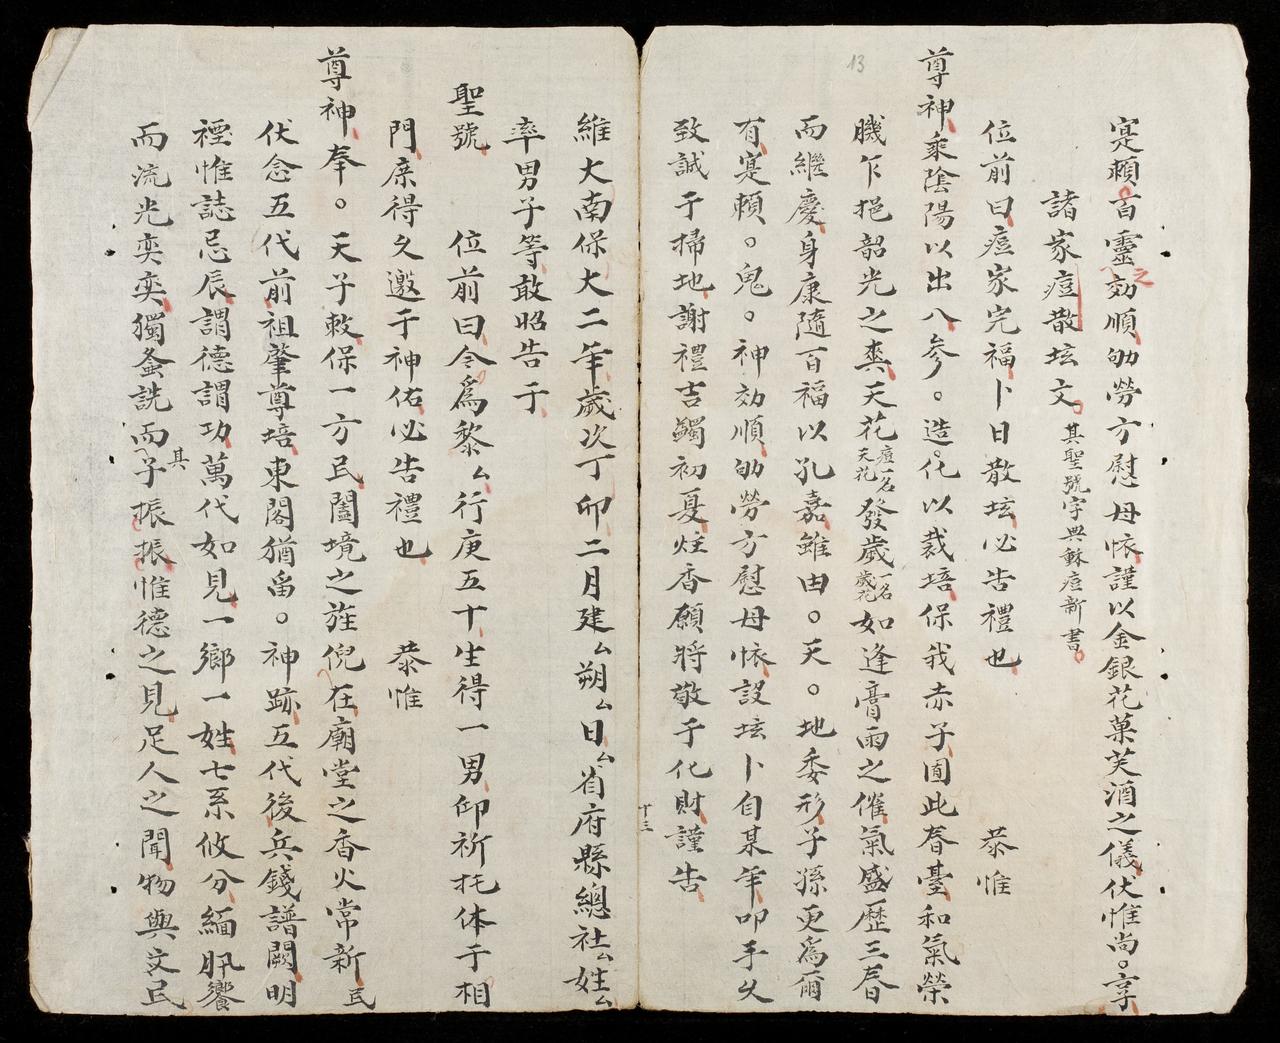 寔賴百靈之効順劬勞方慰母㤇謹以金銀花菓芙酒之儀伏惟尚。享
諸家痘散坛文。其聖號字典麻痘新書
位前曰痘家完福卜日散坛必告禮也 恭惟
尊神乘陰陽以出入参。造化以裁培保我赤子囿此春臺和氣榮
機乍挹韶光之爽天花痘一名天花發歲一名歲花如逢膏雨之催氣盛歷三春
而繼慶身康隨百福以孔嘉雖由。天。地委形子孫更為爾
有寔賴。鬼。神効順劬勞方慰母㤇設坛卜自某年叩手久
致誠于掃地謝禮吉蠲初夏炷香願將敬于化財謹告
十三
13
維大南保大二年歲次丁卯二月建厶朔厶日厶省府縣總社厶姓厶
率男子等敢昭告于
聖號 位前曰今為黎厶行庚五十生得一男仰祈托体于相
門庶得久邀于神佑必告禮也 恭惟
尊神奉。天子敕保一方民闔境之旄倪在廟堂之香火常新民
伏念五代前祖肇尊培東閣猶留。神跡五代後兵錢譜闕明
禋惟誌忌辰謂德謂功萬代如見一鄉一姓七系攸分緬肸饗
而流光奕奕獨螽詵而其子振振惟德之見足人之聞物與文民